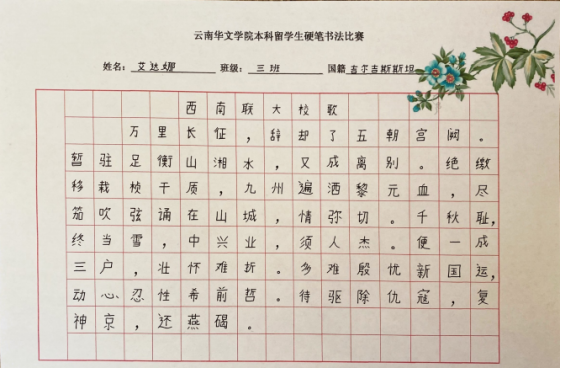 云南华文学院本科留学生硬笔书法比赛
姓名：艾达娜 班级：三班 国籍吉尔吉斯斯坦
西南联大校歌
万里长征，辞却了五朝宫阙。
暂驻足衡山湘水，又成离别。绝徼
移栽桢干质，九州遍洒黎元血，尽
笳吹弦诵在山城，情弥切。千秋耻，
终当雪，中兴业，须人杰。便一成
三户，壮怀难折。多难殷忧新国运，
动心忍性希前哲。待驱除仇寇，复
神京，还燕碣。